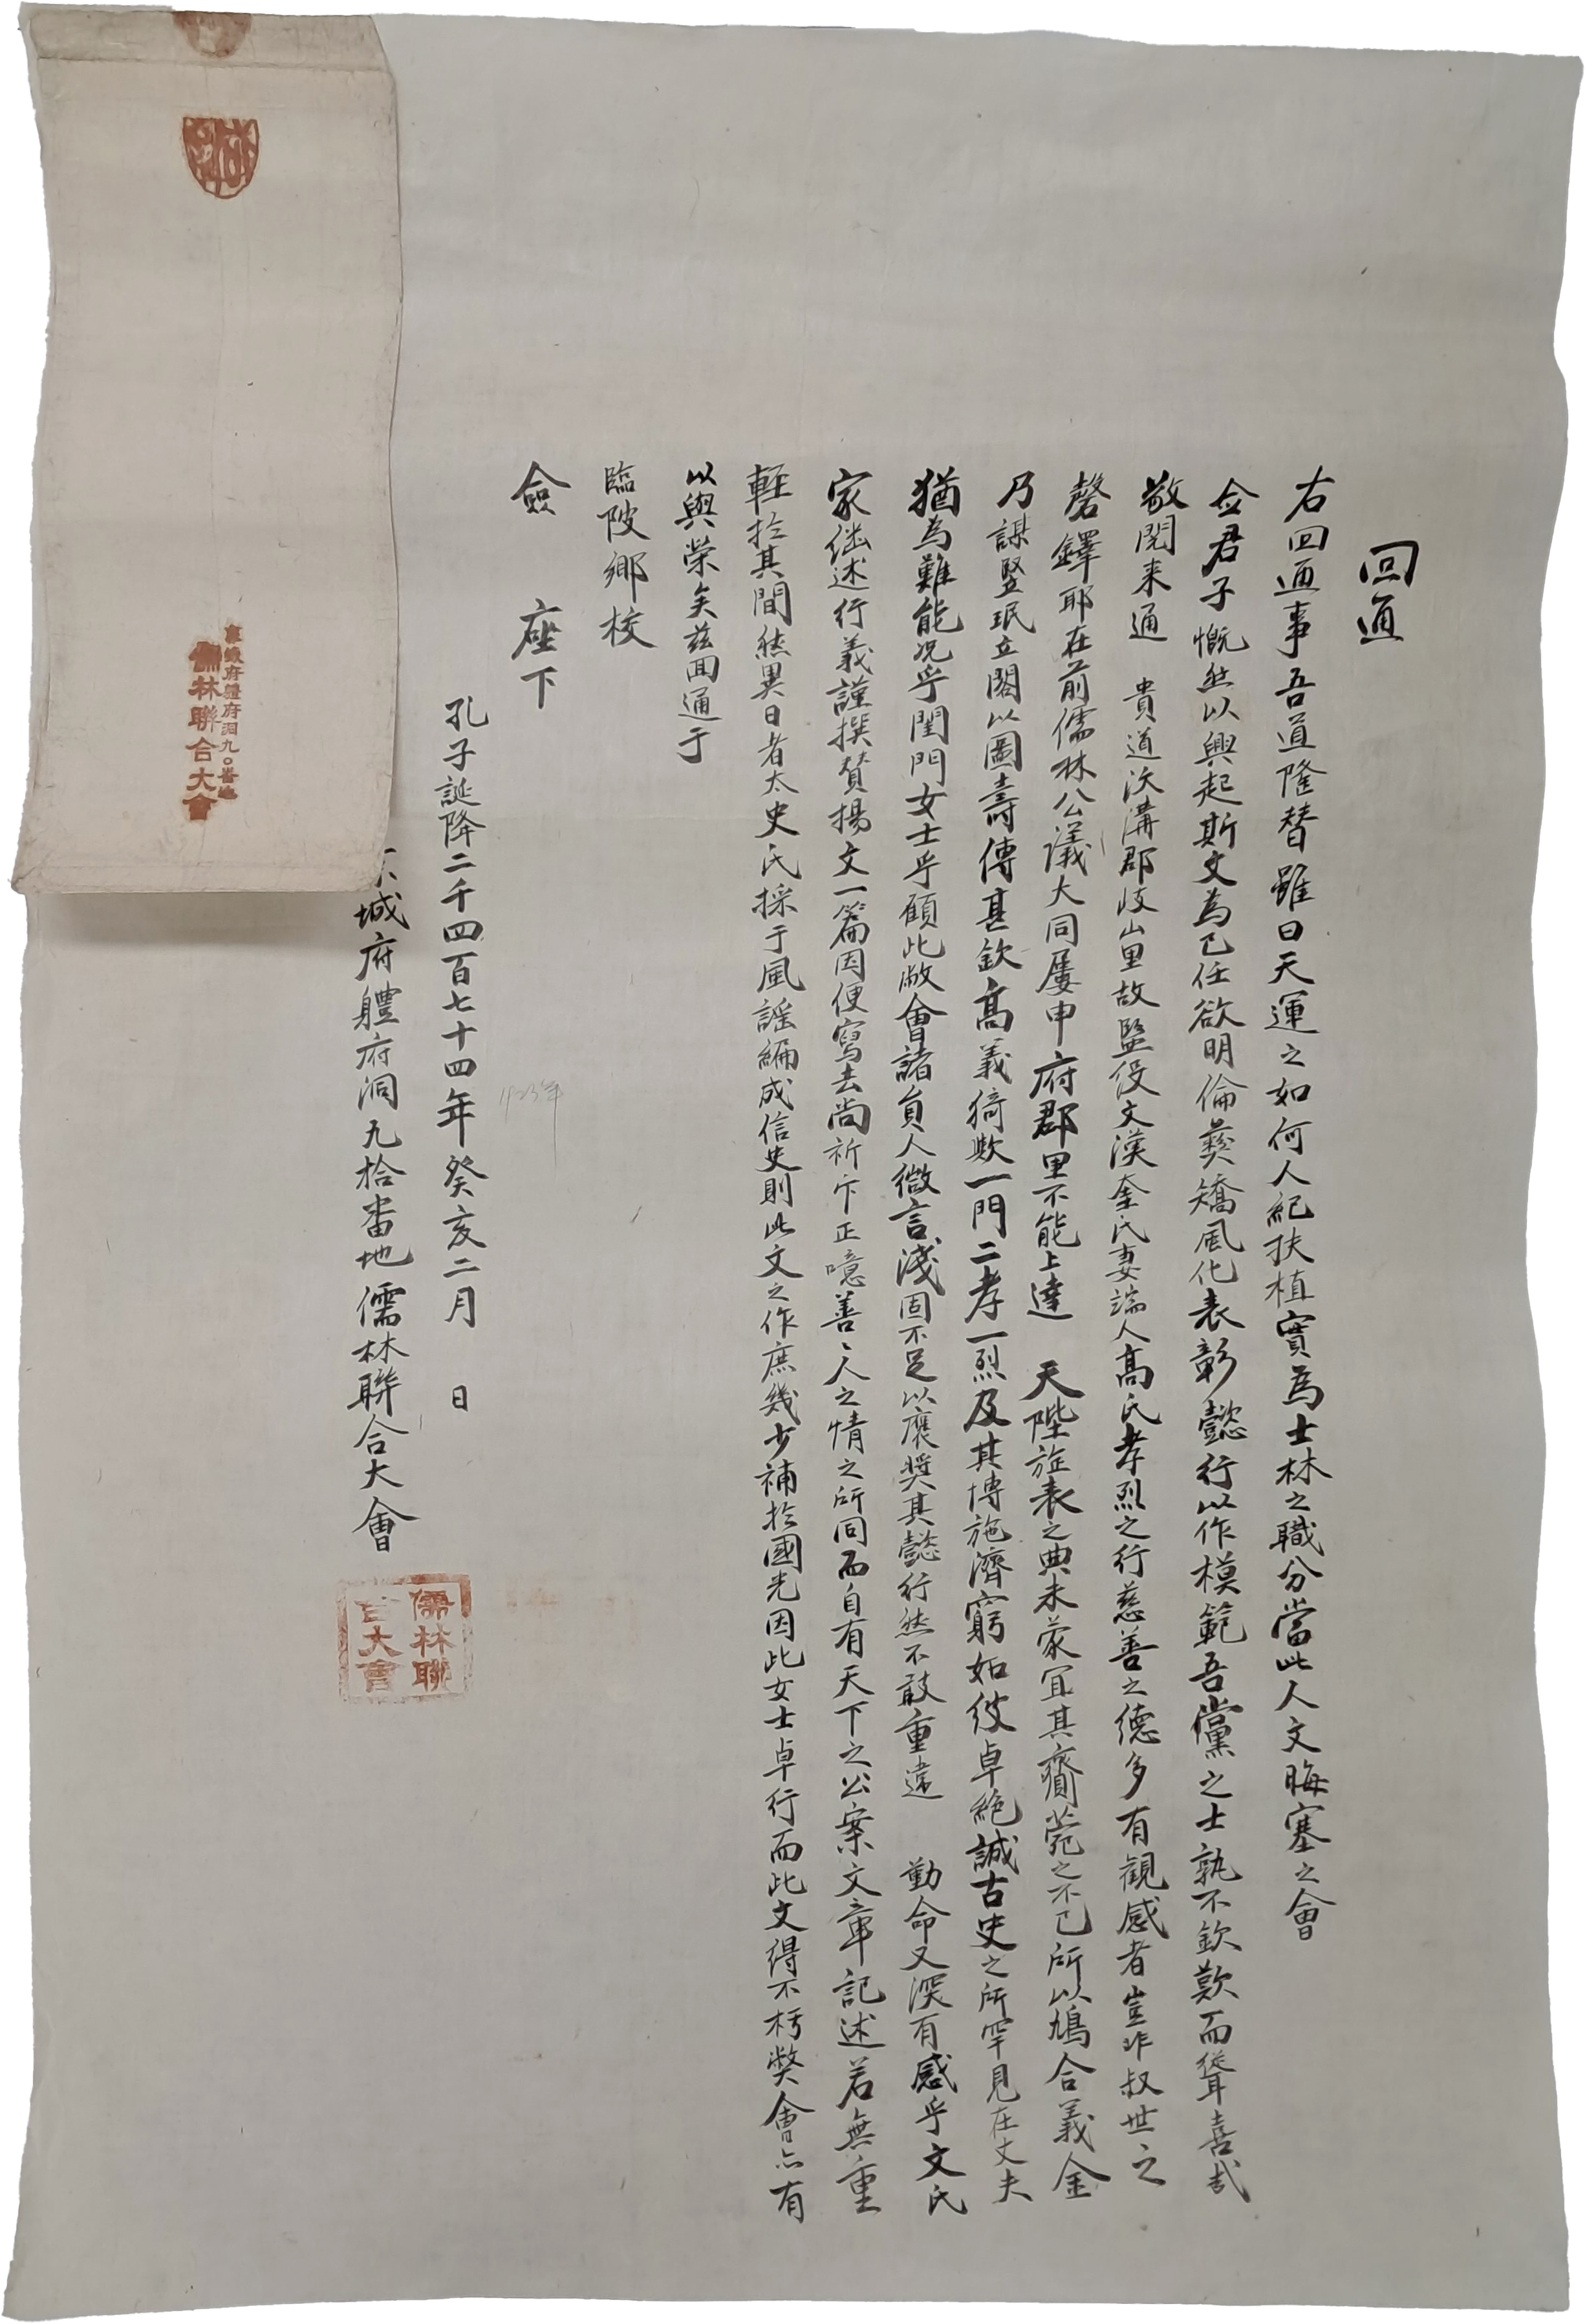 回通
右回通事吾道隆替雖曰天運之如何人紀扶植實爲士林之職分當此人文晦塞之會
僉君子慨然以興起斯文爲己任欲明倫彝矯風化表彰懿行以作模範吾黨之士孰不欽歎而聳喜哉
敬閱来通 貴道沃溝郡岐山里故監役文漢奎氏妻端人高氏孝烈之行慈善之德多有觀感者豈非叔世之
磬鐸耶在前儒林公議大同屢申府郡里不能上達 天陛旌表之典未蒙宜其齎菀之不已所以鳩合義金
乃謀竪珉立閣以圖壽傳甚欽高義猗歟一門二孝一烈及其博施濟窮如彼卓絶誠古史之所罕見在丈夫
猶為難能况乎閨門女士乎顧此敝會諸員人微言淺固不足以褒奬其懿行然不敢重違 勤命又深有感乎文氏
家継述行義謹撰賛揚文一篇因便寫去尚祈斤正噫善〻人之情之所同而自有天下之公案文章記述若無重
輕於其間然異日者太史氏採于風謠編成信史則此文之作庶幾少補於國光因此女士卓行而此文得不朽獘會亦有
以與榮矣茲回通于
臨陂鄉校
僉 座下
孔子誕降二千四百七十四年癸亥二月 日
城府體府洞九拾番地儒林聯合大會
1923年
儒林聯
合大會
京城府體府洞九〇番地
儒林聯合大會